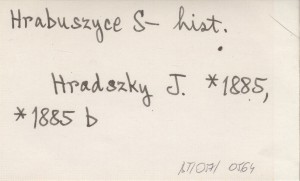 Hrabuszyce S- hist.
Hradszky J. *1885,
*1885 b
0564